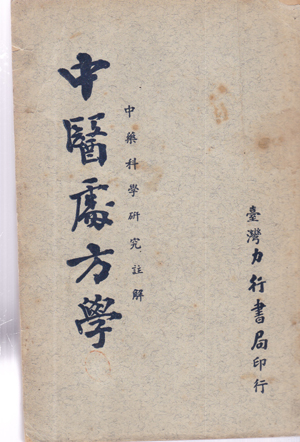 中醫處方學
中藥科學研究註解
臺灣力行書局印行